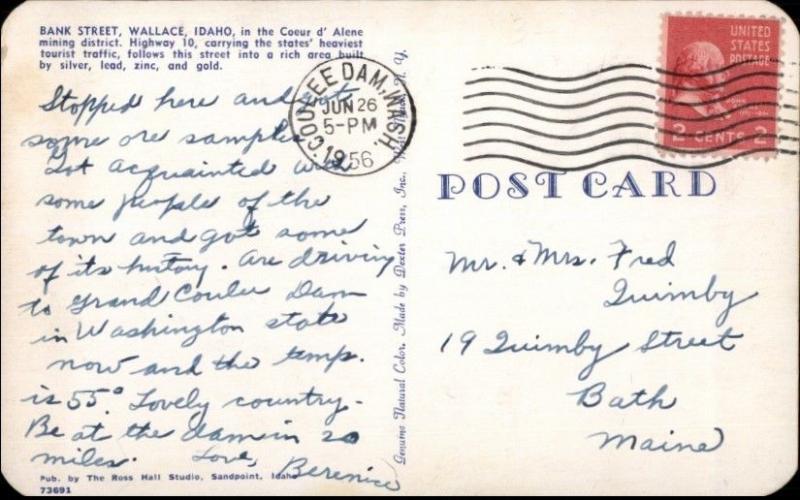 BANK STREET, WALLACE, IDAHO, in the Coeur d' Alene
mining district. Highway 10, carrying the states' heaviest
tourist traffic, follows this street into a rich area built
by silver, lead, zinc, and gold.
Stopped here and got
some ore samples
Got acquainted with
some people of the
town and got some
of its history. Are driving
to Grand Coulee Dam
in Washington state
now and the temp.
is 55° Lovely country.
Be at the dam in 20
miles. Love, Berenice
Pub. by The Ross Hall Studio, Sandpoint, Idaho
73691
COULEE DAM, WASH.
JUN 26
5-PM
1956
Genuine Natural Color, Made by Dexter Press, Inc., N. Y.
UNITED
STATES
POSTAGE
2 CENTS 2
POST CARD
Mr. & Mrs. Fred
Quimby
19 Quimby Street
Bath
Maine